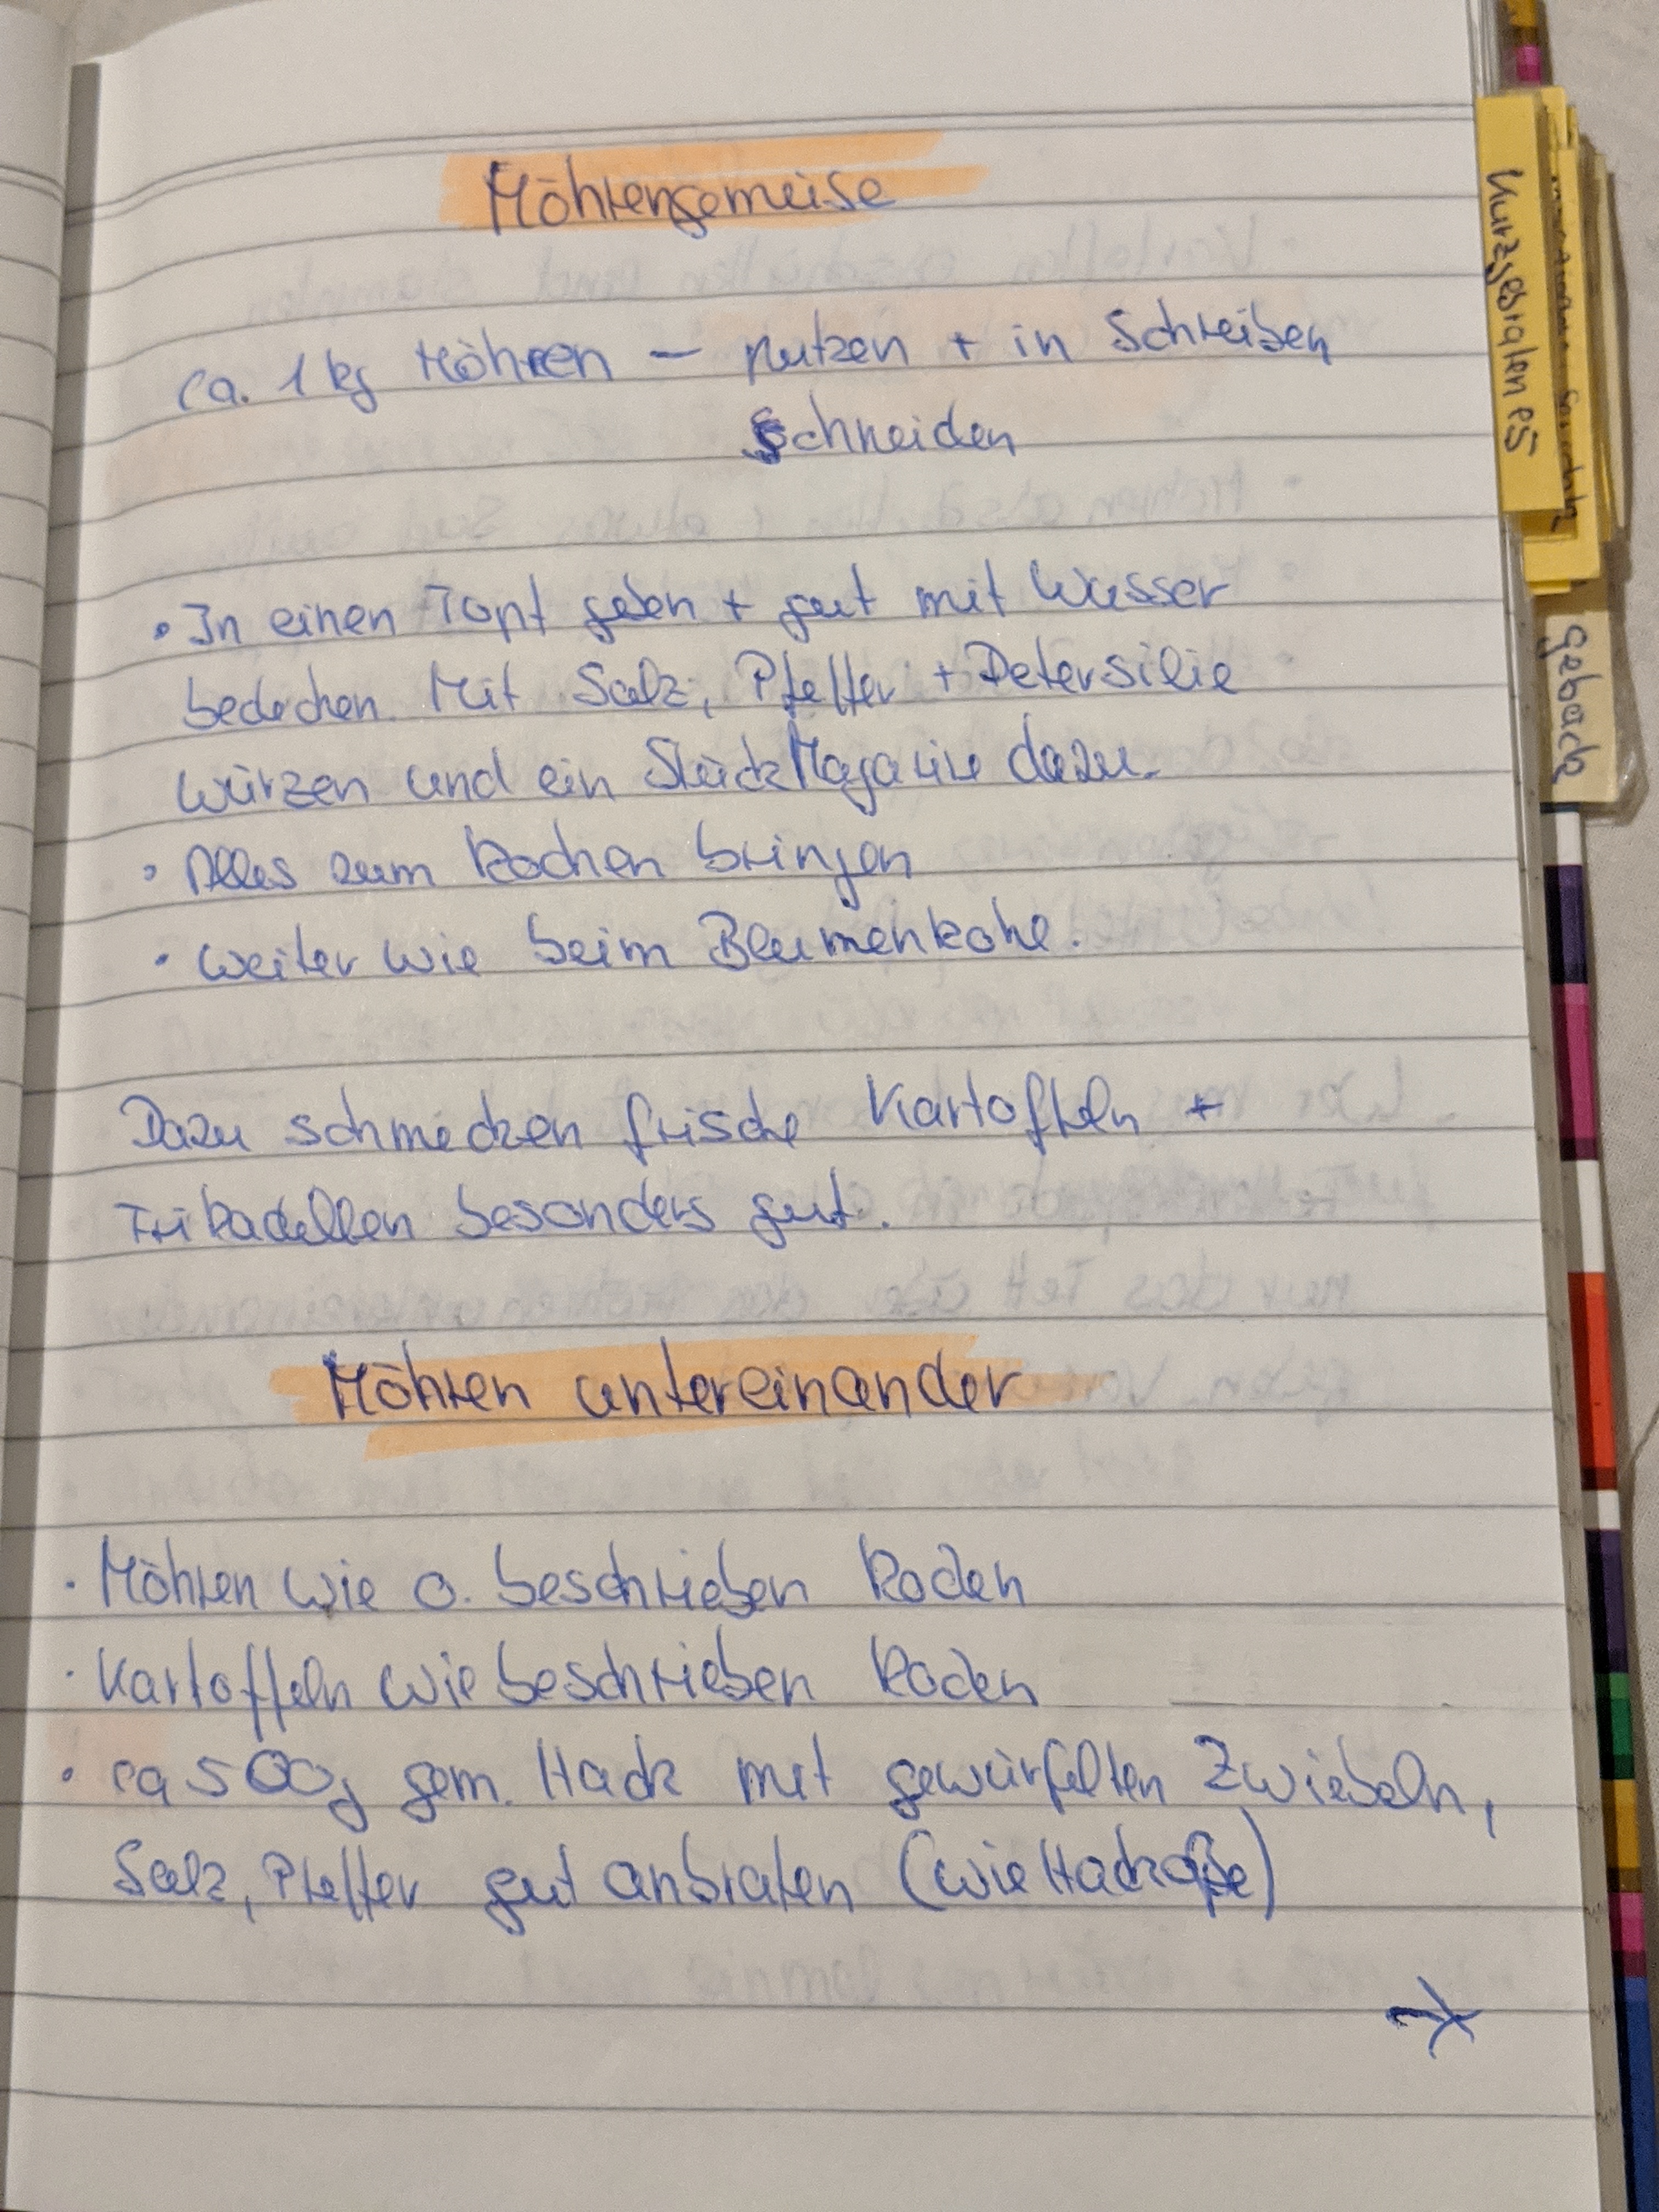 Möhrengemüse
ca. 1 kg Möhren – putzen + in Schreiben
schneiden
• In einen Topf geben + gut mit Wasser
bedecken. Mit Salz, Pfeffer + Petersilie
würzen und ein Stück Magarine dazu.
• Alles zum Kochen bringen
• weiter wie beim Blumenkohl.
Dazu schmecken frische Kartoffeln +
Frikadellen besonders gut.
Möhren untereinander
• Möhren wie o. beschrieben kochen
• Kartoffeln wie beschrieben kochen
• ca 500g gem. Hack mit gewürfelten Zwiebeln,
Salz, Pfeffer gut anbraten (wie Hacksoße)
→
Kurzgebratenes
Gebäck